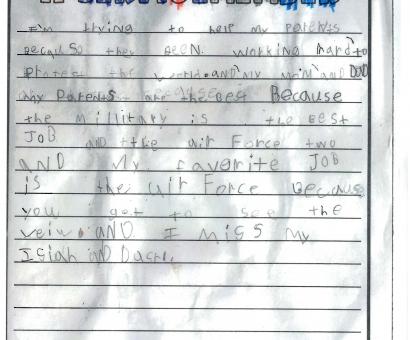 I'm trying to help my Parents
Because they BEEN working hard to
Protect the World. AND my mom and DAD
my Parents are the Best Because
the millitary is the Best
JOB AND the air Force two
AND My Favorite JOB
is the air Force Because
you get to see the
veiw. AND I miss my
Isiah inD